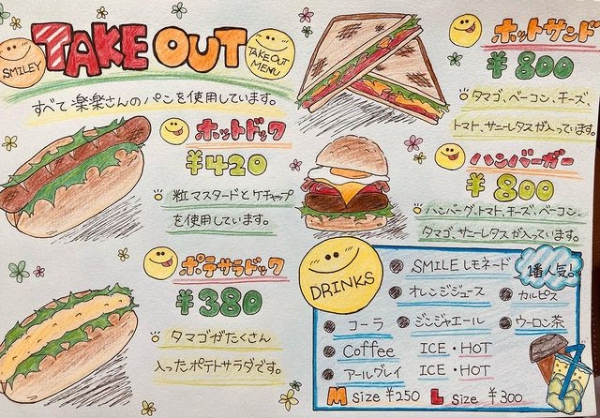 SMILEY
TAKE OUT
TAKE OUT
MENU
すべて楽楽さんのパンを使用しています。
ホットドック
¥420
粒マスタードとケチャップ
を使用しています。
ポテサラドック
¥380
タマゴがたくさん
入ったポテトサラダです。
ホットサンド
¥800
タマゴ、ベーコン、チーズ、
トマト、サニーレタスが入っています。
ハンバーガー
¥800
ハンバーグ、トマト、チーズ、ベーコン、
タマゴ、サニーレタスが入っています。
DRINKS
SMILEレモネード
1番人気!
オレンジジュース
カルピス
コーラ
ジンジャエール
ウーロン茶
Coffee ICE・HOT
アールグレイ ICE・HOT
M size ¥250 L size ¥300